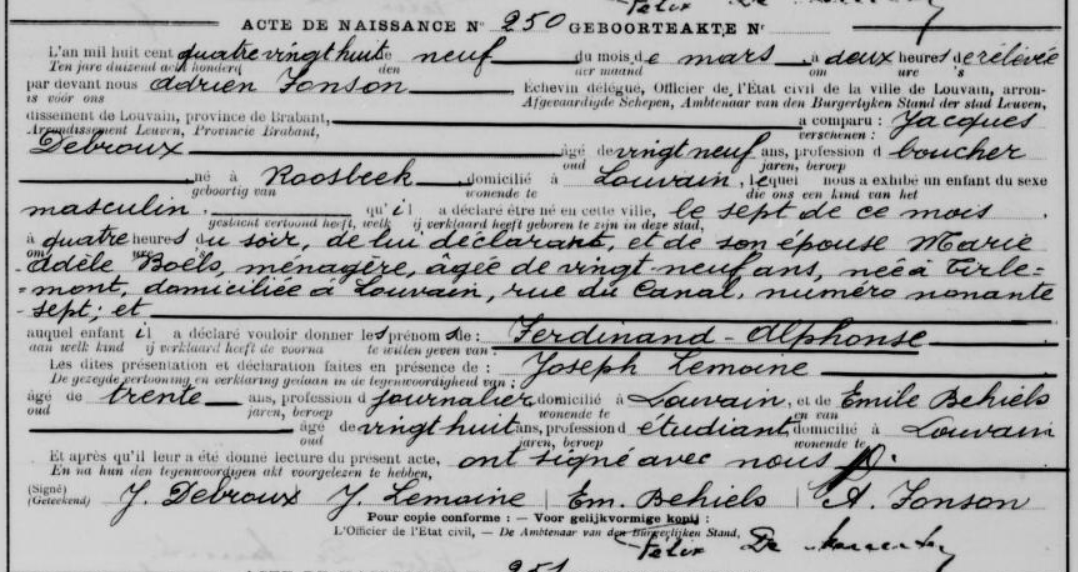 Félix De
ACTE DE NAISSANCE N° 250 GEBOORTEAKTE Nr
L'an mil huit cent quatre vingt huit, le neuf du mois de mars, à deux heures de relevée
Ten jare duizend acht honderd den der maand om ure 's
par devant nous Adrien Fonson Echevin délégué, Officier de l'État civil de la ville de Louvain, arron-
is vóór ons Afgevaardigde Schepen, Ambtenaar van den Burgerlyken Stand der stad Leuven,
dissement de Louvain, province de Brabant, a comparu : Jacques
Arrondissement Leuven, Provincie Brabant, verschenen :
Debroux âgé de vingt neuf ans, profession d boucher
oud jaren, beroep
né à Roosbeek domicilié à Louvain, lequel nous a exhibé un enfant du sexe
geboortig van wonende te die ons een kind van het
masculin. qu'il a déclaré être né en cette ville, le sept de ce mois
geslacht vertoond heeft, welk ij verklaard heeft geboren te zijn in deze stad,
à quatre heures du soir, de lui déclarant, et de son épouse Marie
om ure 's
Adèle Boëls, ménagère, âgée de vingt-neuf ans, née à Tirle=
=mont, domiciliée à Louvain, rue du Canal, numéro nonante
-sept; et
auquel enfant il a déclaré vouloir donner les prénoms de : Ferdinand-Alphonse
aan welk kind ij verklaard heeft de voorna te willen geven van :
Les dites présentation et déclaration faites en présence de : Joseph Lemoine
De gezegde vertooning en verklaring gedaan in de tegenwoordigheid van :
âgé de trente ans, profession d journalier domicilié à Louvain, et de Emile Behiels
oud jaren, beroep wonende te en van
âgé de vingt huit ans, profession d étudiant, domicilié à Louvain
oud jaren, beroep wonende te
Et après qu'il leur a été donné lecture du présent acte, ont signé avec nous
En na hun den tegenwoordigen akt voorgelezen te hebben,
(Signé) J. Debroux J. Lemoine | Em. Behiels | A. Fonson
(Geteekend)
Pour copie conforme : — Voor gelijkvormige kopij :
L'Officier de l'Etat civil, — De Ambtenaar van den Burgerlijken Stand,
Félix De
251